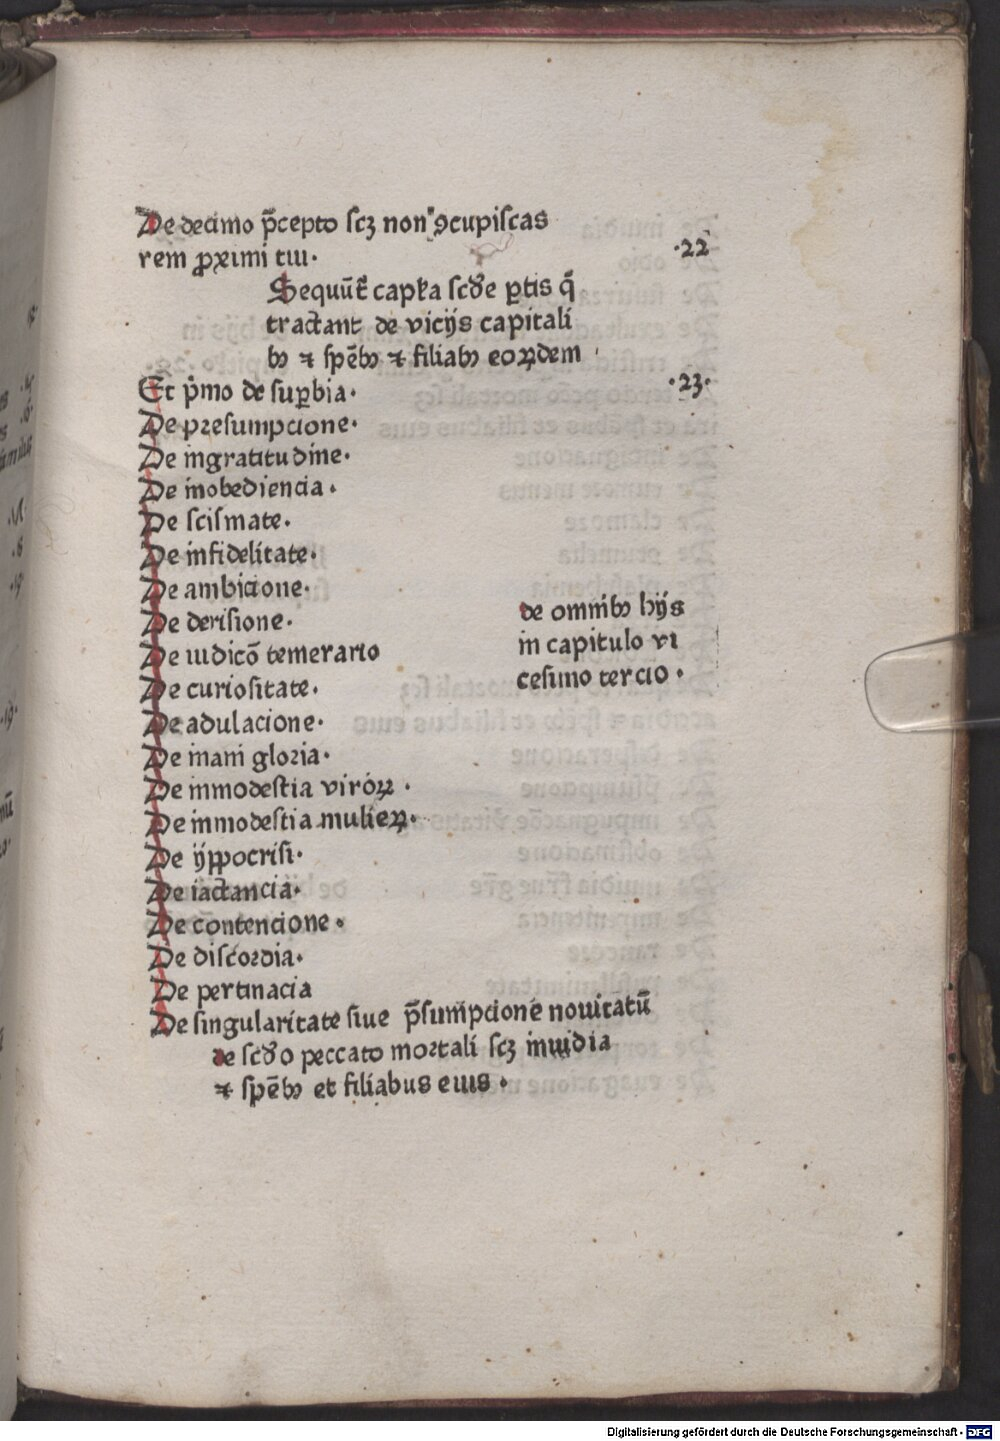 De decimo p̄cepto ſcꝫ non ꝯcupiſcas
rem ꝓximi tui· ·22
Sequūt̄ capl̓a ſcd̓e ꝑtis q̄
tractant de vicijs capitali
bꝫ ⁊ ſpēbꝫ ⁊ filiabꝫ eoꝝdem
Et p̓mo de ſuꝑbia· ·23·
De preſumpcione·
De ingratitudine·
De inobediencia·
De ſciſmate·
De infidelitate·
De ambicione·
De deriſione·
De iudicō temerario
De curioſitate·
De adulacione·
De inani gloria·
De inmodeſtia viroꝝ·
De inmodeſtia mulieꝝ·
De ÿpocriſi·
De iactancia·
De contencione·
De diſcordia·
De pertinacia
De ſingularitate ſiue p̄ſumpcione nouitatū
de omnibꝫ hijs
in capitulo vi
ceſimo tercio·
de ſcd̓o peccato mortali ſcꝫ inuidia
⁊ ſpēbꝫ et filiabus eius·
Digitalisierung gefördert durch die Deutsche Forschungsgemeinschaft - DFG